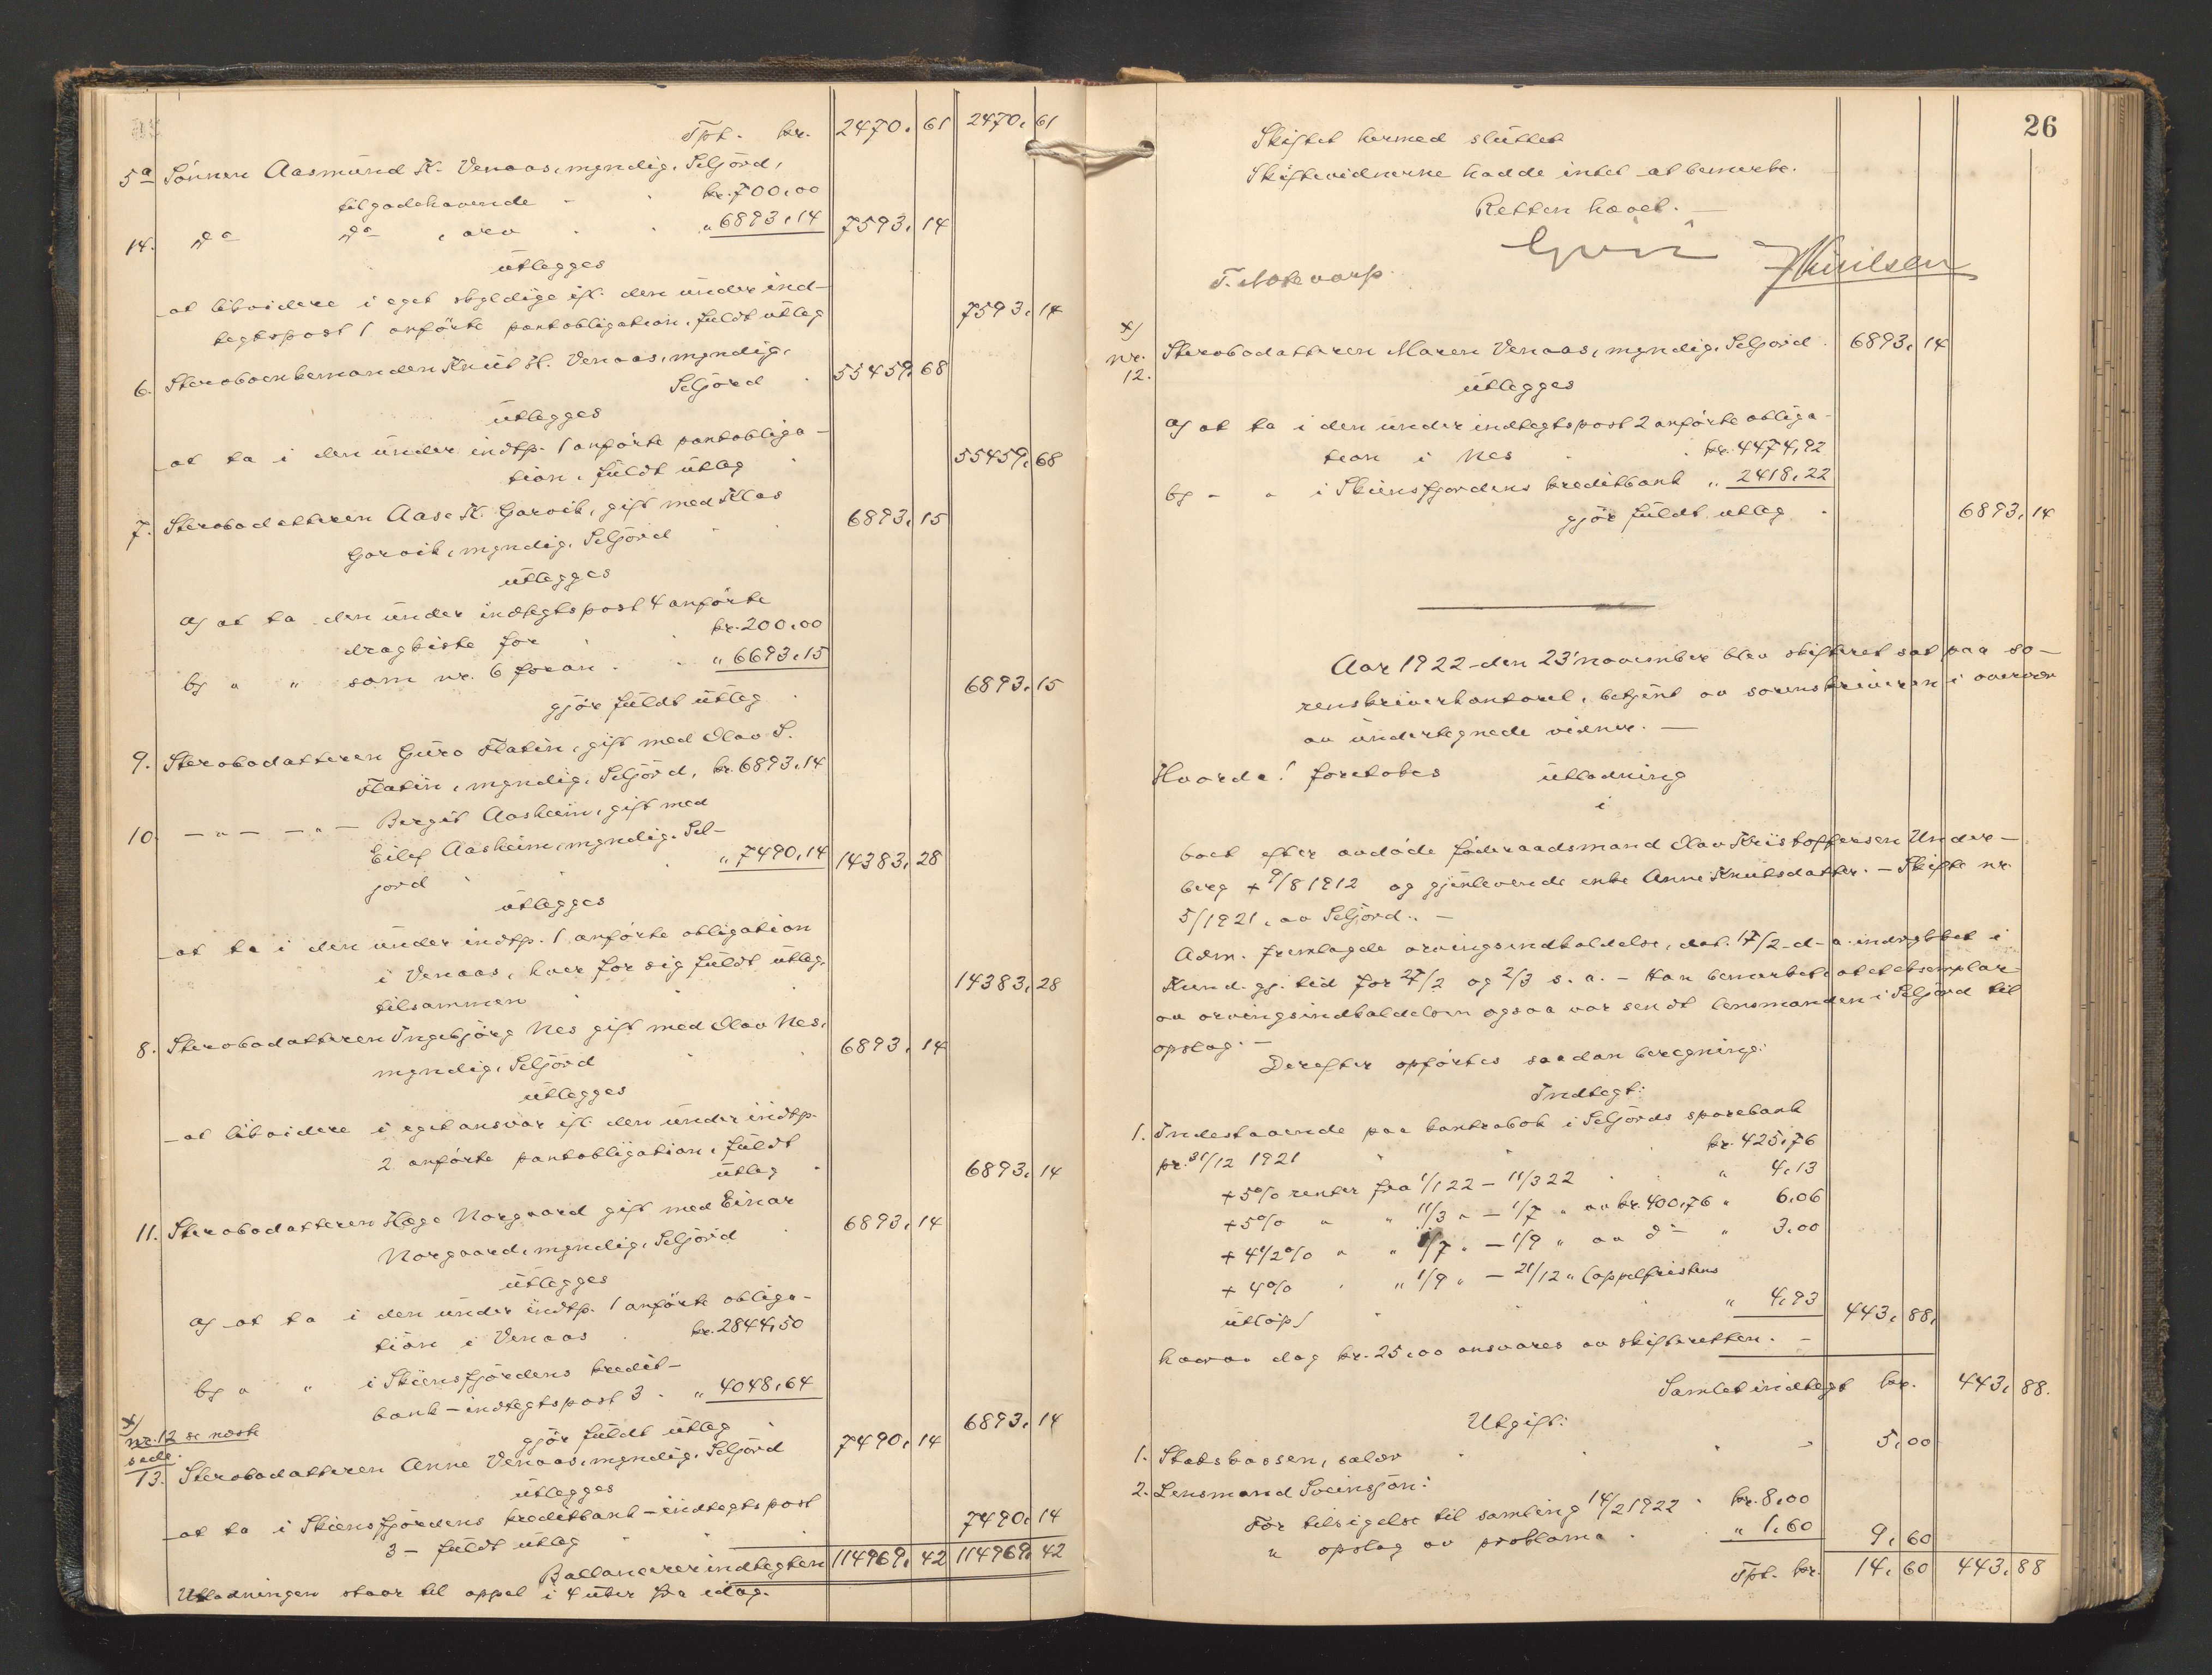 Tpt. kr. 2470,61 2470,61
5a Sönnen Aasmund K. Venaas, myndig, Seljord,
tilgodehavende - kr. 700,00
14. do do , arv " 6893,14 7593,14
utlegges
at likvidere i eget skyldige ifl. den under ind-
tegtspost 1 anförte pantobligation, fuldt utlæg 7593,14
6. Sterboenkemanden Knut H. Venaas, myndig,
Seljord 55459,68
utlegges
at ta i den under indtp. 1 anförte pantobliga-
tion, fuldt utlæg 55459,68
7. Sterbodatteren Aase K. Garvik, gift med Klas
Garvik, myndig, Seljord 6893,15
utlegges
a) at ta den under indtegtspost 4 anförte
dragkiste for kr. 200,00
b) " " som nr. 6 foran " 6693,15
gjör fuldt utlæg 6893,15
9. Sterbodatteren Guro Flatin, gift med Olav S.
Flatin, myndig, Seljord, kr. 6893,14
10. — " — — " — Bergit Aasheim, gift med
Eilef Aasheim, myndig, Sel-
jord " 7490,14 14383,28
utlegges
at ta i den under indtp. 1 anförte obligation
i Venaas, hver for sig fuldt utlæg,
tilsammen 14383,28
8. Sterbodatteren Ingebjörg Nes gift med Olav Nes,
myndig, Seljord 6893,14
utlegges
at likvidere i eget ansvar ifl. den under indtp.
2 anförte pantobligation, fuldt
utlæg 6893,14
11. Sterbodatteren Hæge Norgaard gift med Einar
Norgaard, myndig, Seljord 6893,14
utlegges
a) at ta i den under indtp. 1 anförte obliga-
tion i Venaas kr. 2844,50
b) " " i Skiensfjordens kredit-
bank - indtegtspost 3 " 4048,64
gjör fuldt utlæg 6893,14
x) nr. 12 se næste
side.
13. Sterbodatteren Anne Venaas, myndig, Seljord 7490,14
utlegges
at ta i Skiensfjordens kreditbank - indtegtspost
3 - fuldt utlæg 7490,14
Ballancerer indtegten 114969,42 114969,42
Utlodningen staar til appel i 4 uker fra idag.
26
Skiftet hermed sluttet
Skiftevidnerne hadde intet at bemerke.
Retten hævet. —
T. Notevarp.
x)
nr.
12. Sterbodatteren Maren Venaas, myndig, Seljord 6893,14
utlegges
a) at ta i den under indtegtspost 2 anförte obliga-
tion i Nes kr. 4474,92
b) - " i Skiensfjordens kreditbank " 2418,22
gjör fuldt utlæg 6893,14
Aar 1922 den 23' november blev skifteret sat paa so-
renskriverkontoret, betjent av sorenskriveren i overvær
av undertegnede vidner. —
Hvorda! foretokes utlodning
i
boet efter avdöde föderaadsmand Olav Kristoffersen Under-
berg + 9/8 1912 og gjenlevende enke Anne Knutsdatter. — Skifte nr.
5/1921, av Seljord. —
Adm. fremlagde arvingsindkaldelse, dat. 17/2 d. a. indrykket i
Kund. gj. tid for 27/2 og 2/3 s. a. — Han bemerket at et eksemplar
av arvingsindkaldelsen ogsaa var sendt lensmanden i Seljord til
opslag. —
Derefter opförtes saadan beregning:
Indtegt:
1. Indestaaende paa kontrabok i Seljords sparebank
pr. 31/12 1921 kr. 425,76
+ 5% renter fra 1/1 22 — 11/3 22 " 4,13
+ 5% " " 11/3 " — 1/7 " av kr. 400,76 " 6,06
+ 4 1/2% " " 1/7 " — 1/9 " av do " 3,00
+ 4% " " 1/9 " — 21/12 " (appelfristens
utlöp) " 4,93 443,88.
hvorav dog kr. 25,00 ansvares av skifteretten. —
Samlet indtegt kr. 443,88.
Utgift:
1. Statskassen, salær 5,00
2. Lensmand Sveinsjon:
For tilsigelse til samling 14/2 1922 kr. 8,00
" opslag av proklama " 1,60 9,60
Tpt. kr. 14,60 443,88